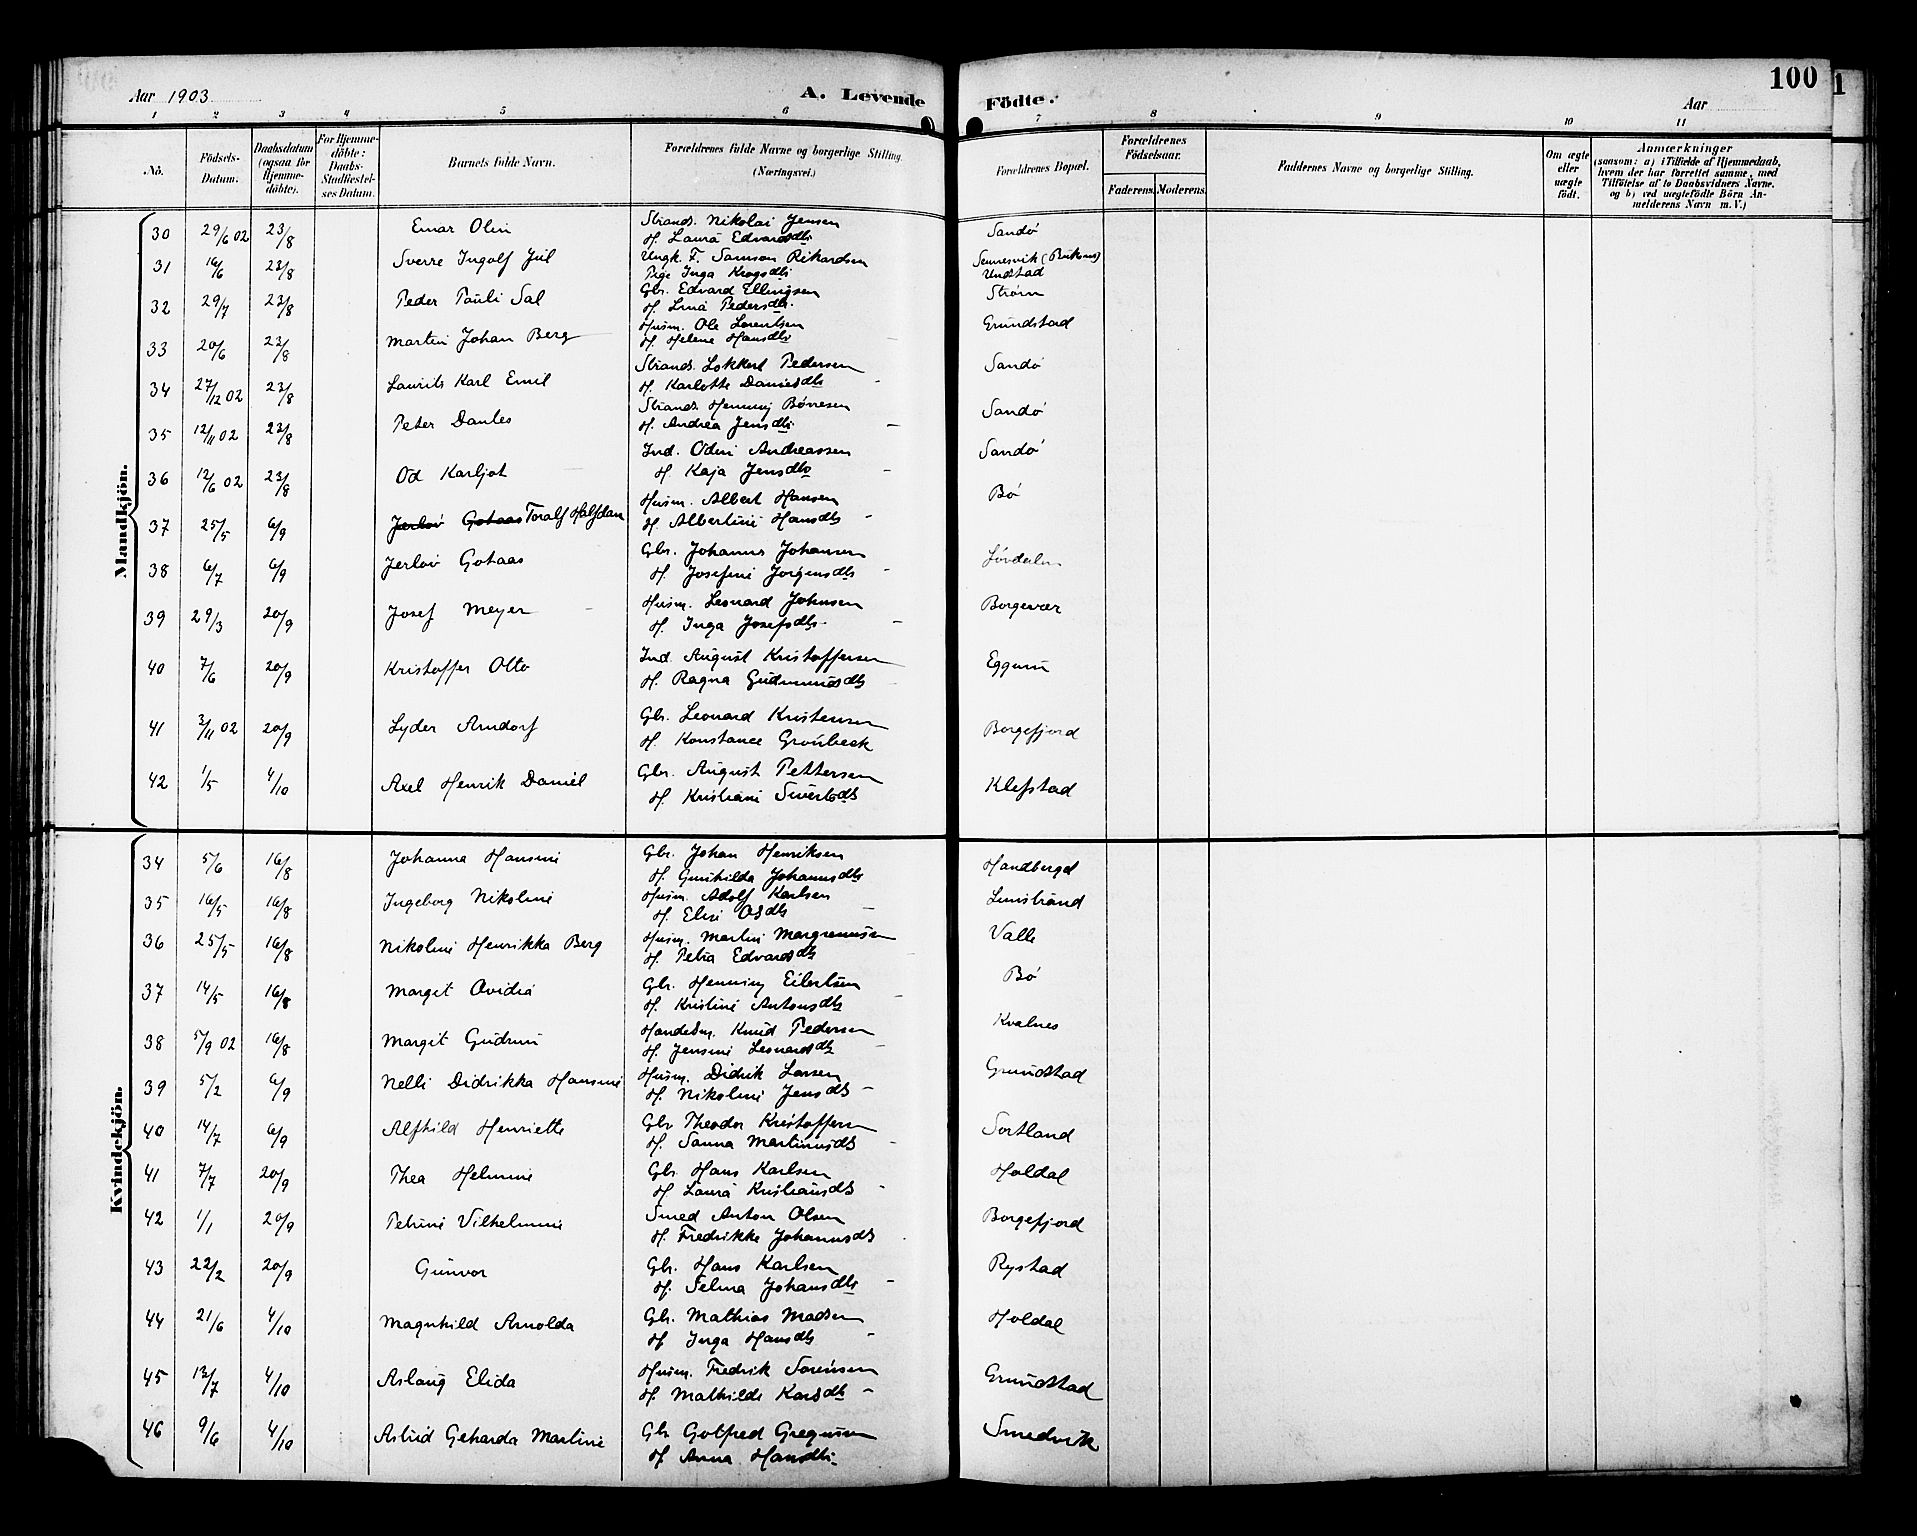 Aar 1903
A. Levende Födte.
Aar
100
1 2 3 4 5 6 7 8 9 10 11
No.
Födsels-Datum.
Daabsdatum (ogsaa for Hjemme-döbte).
For Hjemme-döbte: Daabs-Stadfæstel-ses Datum.
Barnets fulde Navn.
Forældrenes fulde Navne og borgerlige Stilling (Næringsvei.)
Forældrenes Bopæl.
Forældrenes Födselsaar.
Faderens. Moderens.
Faddernes Navne og borgerlige Stilling.
Om ægte eller uægte födt.
Anmærkninger
(saasom: a) i Tilfælde af Hjemmedaab, hvem der har forrettet samme, med Tilföielse af to Daabsvidners Navne, og b) ved uægtefödte Börn An-melderens Navn m. V.)
Mandkjön.
30 29/6 02 23/8 Einar Olin Strands. Nikolai Jensen Sandö
H. Laura Edvardsdtr
31 16/6 23/8 Sverre Ingolf Jul Ungk. F. Samson Rikardsen Sennesvik
Pige Inga Krogsdtr Unstad
32 29/7 23/8 Peder Pauli Sal Gbr. Edvard Ellingsen Ström
H. Lina Pedersdtr.
33 20/6 23/8 Martin Johan Berg Husm. Ole Lorentsen Grundstad
H. Helene Hansdtr
34 27/12 02 23/8 Laurits Karl Emil Strands. Lokkert Pedersen Sandö
H. Karlotte Danielsdtr
35 12/11 02 23/8 Peter Danles Strands. Henning Börresen Sandö
H. Andrea Jensdtr
36 12/6 02 23/8 Od Karljot Ind. Odin Andreassen Sandö
H. Kaja Jensdtr
37 25/5 6/9 Jerlöv Gotaas Toralf Halfdan Husm. Albert Hansen Bö
H. Albertine Hansdtr
38 6/7 6/9 Jerlöv Gotaas Gbr. Johannes Johansen Lövdalen
H. Josefine Jörgensdtr
39 29/3 20/9 Josef Meyer Husm. Leonard Johnsen Borgevær
H. Inga Josefsdtr.
40 7/6 20/9 Kristoffer Otto Ind. August Kristoffersen Eggum
H. Ragna Gudmundsdtr
41 3/11 02 20/9 Lyder Arndorf Gbr. Leonard Kristensen Borgefjord
H. Konstance Grönbeck
42 1/5 4/10 Axel Henrik Daniel Gbr. August Pettersen Klefstad
H. Kristiane Sivertsdtr
Kvindekjön.
34 5/6 16/8 Johanna Hansine Gbr. Johan Henriksen Handberget
H. Gunhilda Johannesdtr
35 16/5 16/8 Ingeborg Nikoline Husm. Adolf Karlsen Limstrand
H. Elise Olsdtr
36 25/5 16/8 Nikoline Henrikka Berg Husm. Martin Margrenussen Valle
H. Petra Edvardsdtr
37 14/5 16/8 Margit Ovidia Gbr. Henning Eilertsen Bö
H. Kristine Antonsdtr
38 5/9 02 16/8 Margit Gudrun Handelsm. Knud Pedersen Kvalnes
H. Jensine Leonardsdtr
39 5/2 6/9 Nelli Didrikka Hansine Husm. Didrik Larsen Grundstad
H. Nikoline Jensdtr
40 14/7 6/9 Alfhild Henriette Gbr Theodor Kristoffersen Sortland
H. Sanna Martinusdtr
41 7/7 20/9 Thea Helmine Gbr. Hans Karlsen Holdal
H. Laura Kristiansdtr
42 1/1 20/9 Petrine Vilhelmine Smed Anton Olsen Borgefjord
H. Fredrikke Johannesdtr
43 22/2 20/9 Gunvor Gbr. Hans Karlsen Rystad
H. Selma Johansdtr
44 21/6 4/10 Magnhild Arnolda Gbr. Mathias Madsen Holdal
H. Inga Hansdtr
45 13/7 4/10 Aslaug Elida Husm. Fredrik Sörensen Grundstad
H. Mathilde Karlsdtr
46 9/6 4/10 Astrid Geharda Martine Gbr Gotfred Gregusen Smedvik
H. Anna Hansdtr